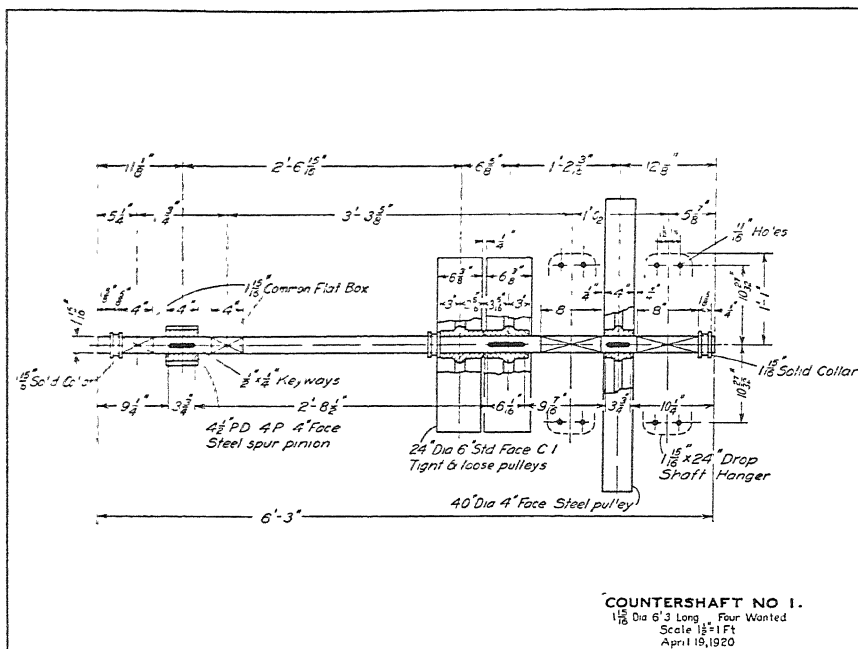 11 1/8" 2'-6 15/16" 6 5/8" 1'-2 3/16" 12 1/8"
5 1/4" 4 3/4" 3'-3 5/8" 5 7/8"
1/4" 11/16" Holes
6 3/8" 6 3/8"
1 15/16" Common Flat Box
4" 4" 4" 3" 3" 1/4" 4" 1/4"
8 8"
10 27/32" 1'-1"
1 15/16"
1 15/16" Solid Collar
1 15/16" Solid Collar
1/2" x 1/4" Keyways
10 27/32"
9 1/4" 3 3/4" 2'-8 1/2" 6 1/16" 9 7/16" 3 3/4" 10 1/4"
4 1/2" PD 4P 4" Face
Steel spur pinion
24" Dia 6" Std Face C I
Tight & loose pulleys
1 15/16" x 24" Drop
Shaft Hanger
40" Dia 4" Face Steel pulley
6'-3"
COUNTERSHAFT NO 1.
1 15/16 Dia 6'3 Long Four Wanted
Scale 1 1/2"=1 Ft
April 19, 1920